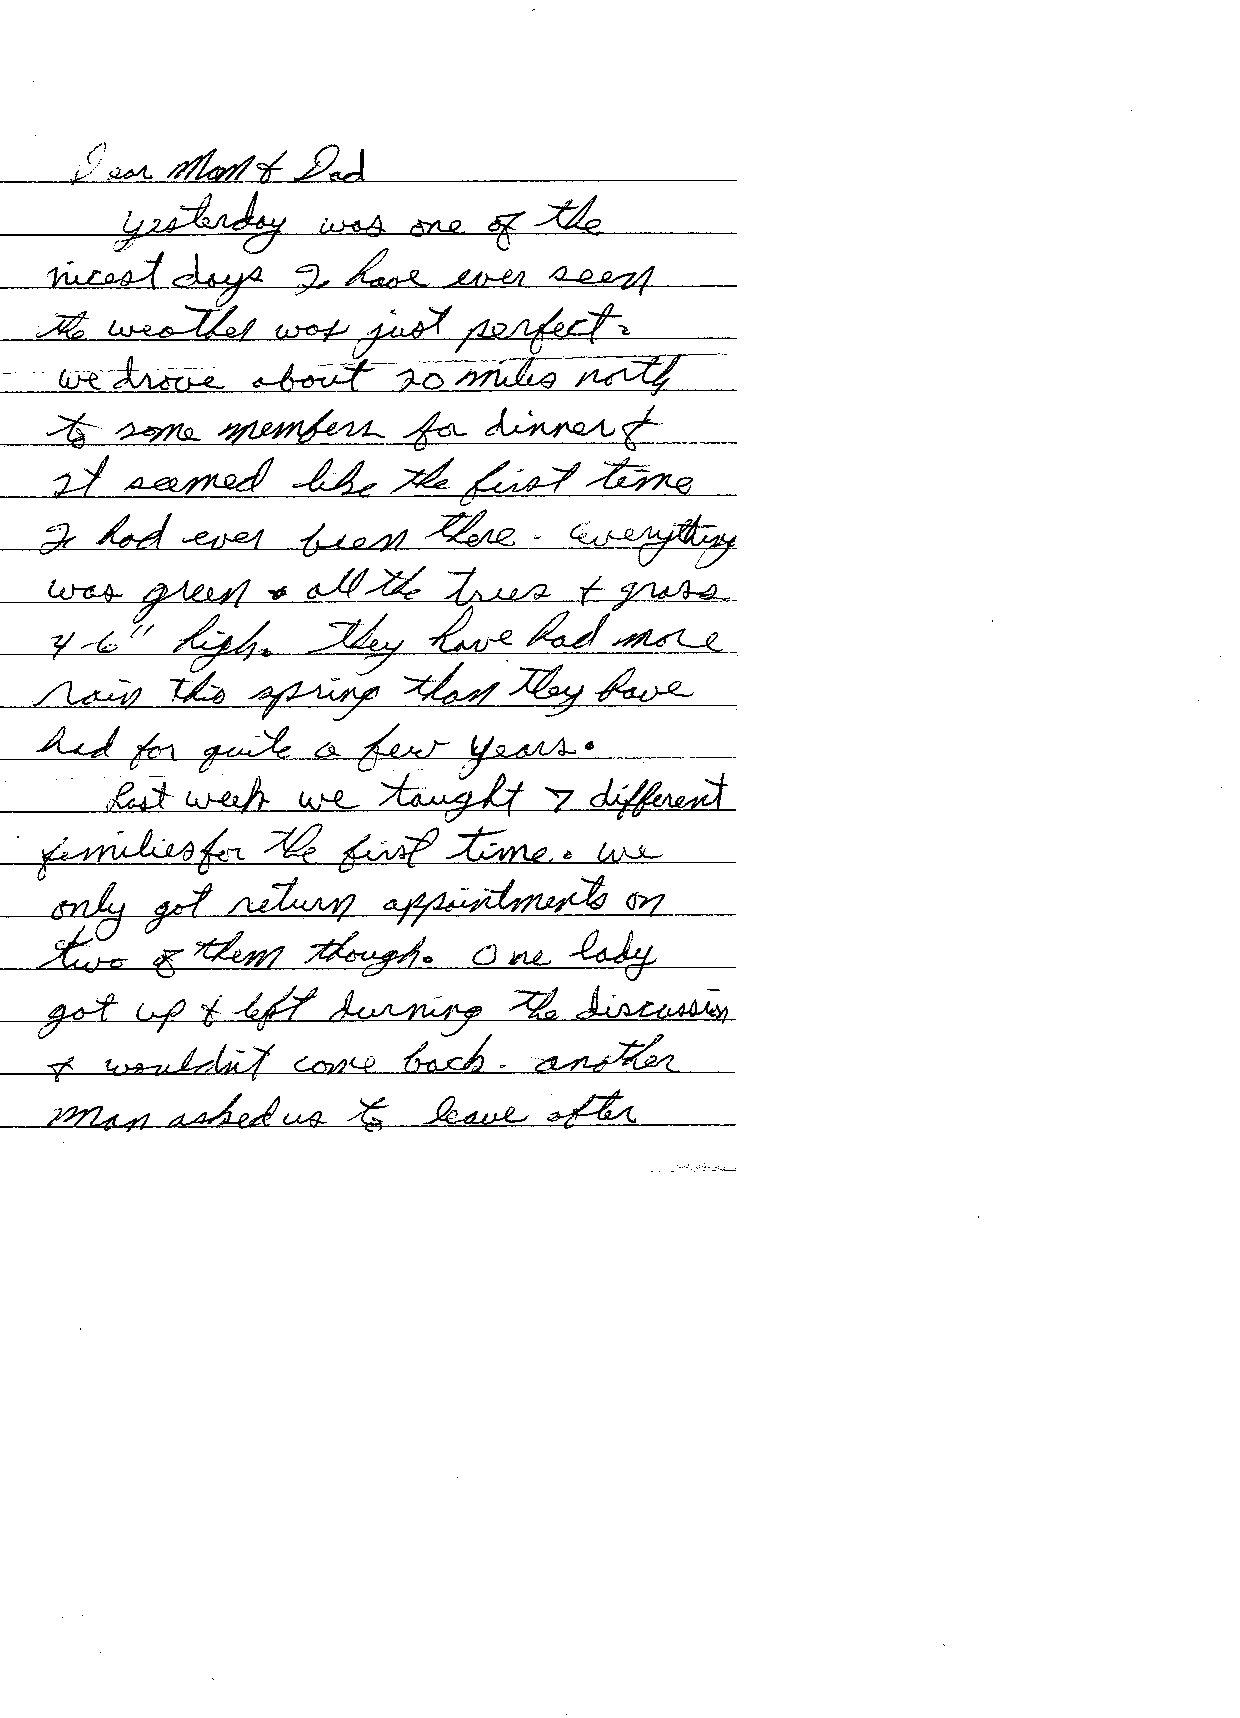 Dear Mom & Dad
yesterday was one of the
nicest days I have ever seen
the weather was just perfect.
we drove about 20 miles north
to some members for dinner &
it seemed like the first time
I had ever been there. everything
was green & all the trees & grass
4-6" high. They have had more
rain this spring than they have
had for quite a few years.
Last week we taught 7 different
families for the first time. we
only got return appointments on
two of them though. One lady
got up & left durning the discussion
& wouldn't come back. another
man asked us to leave after